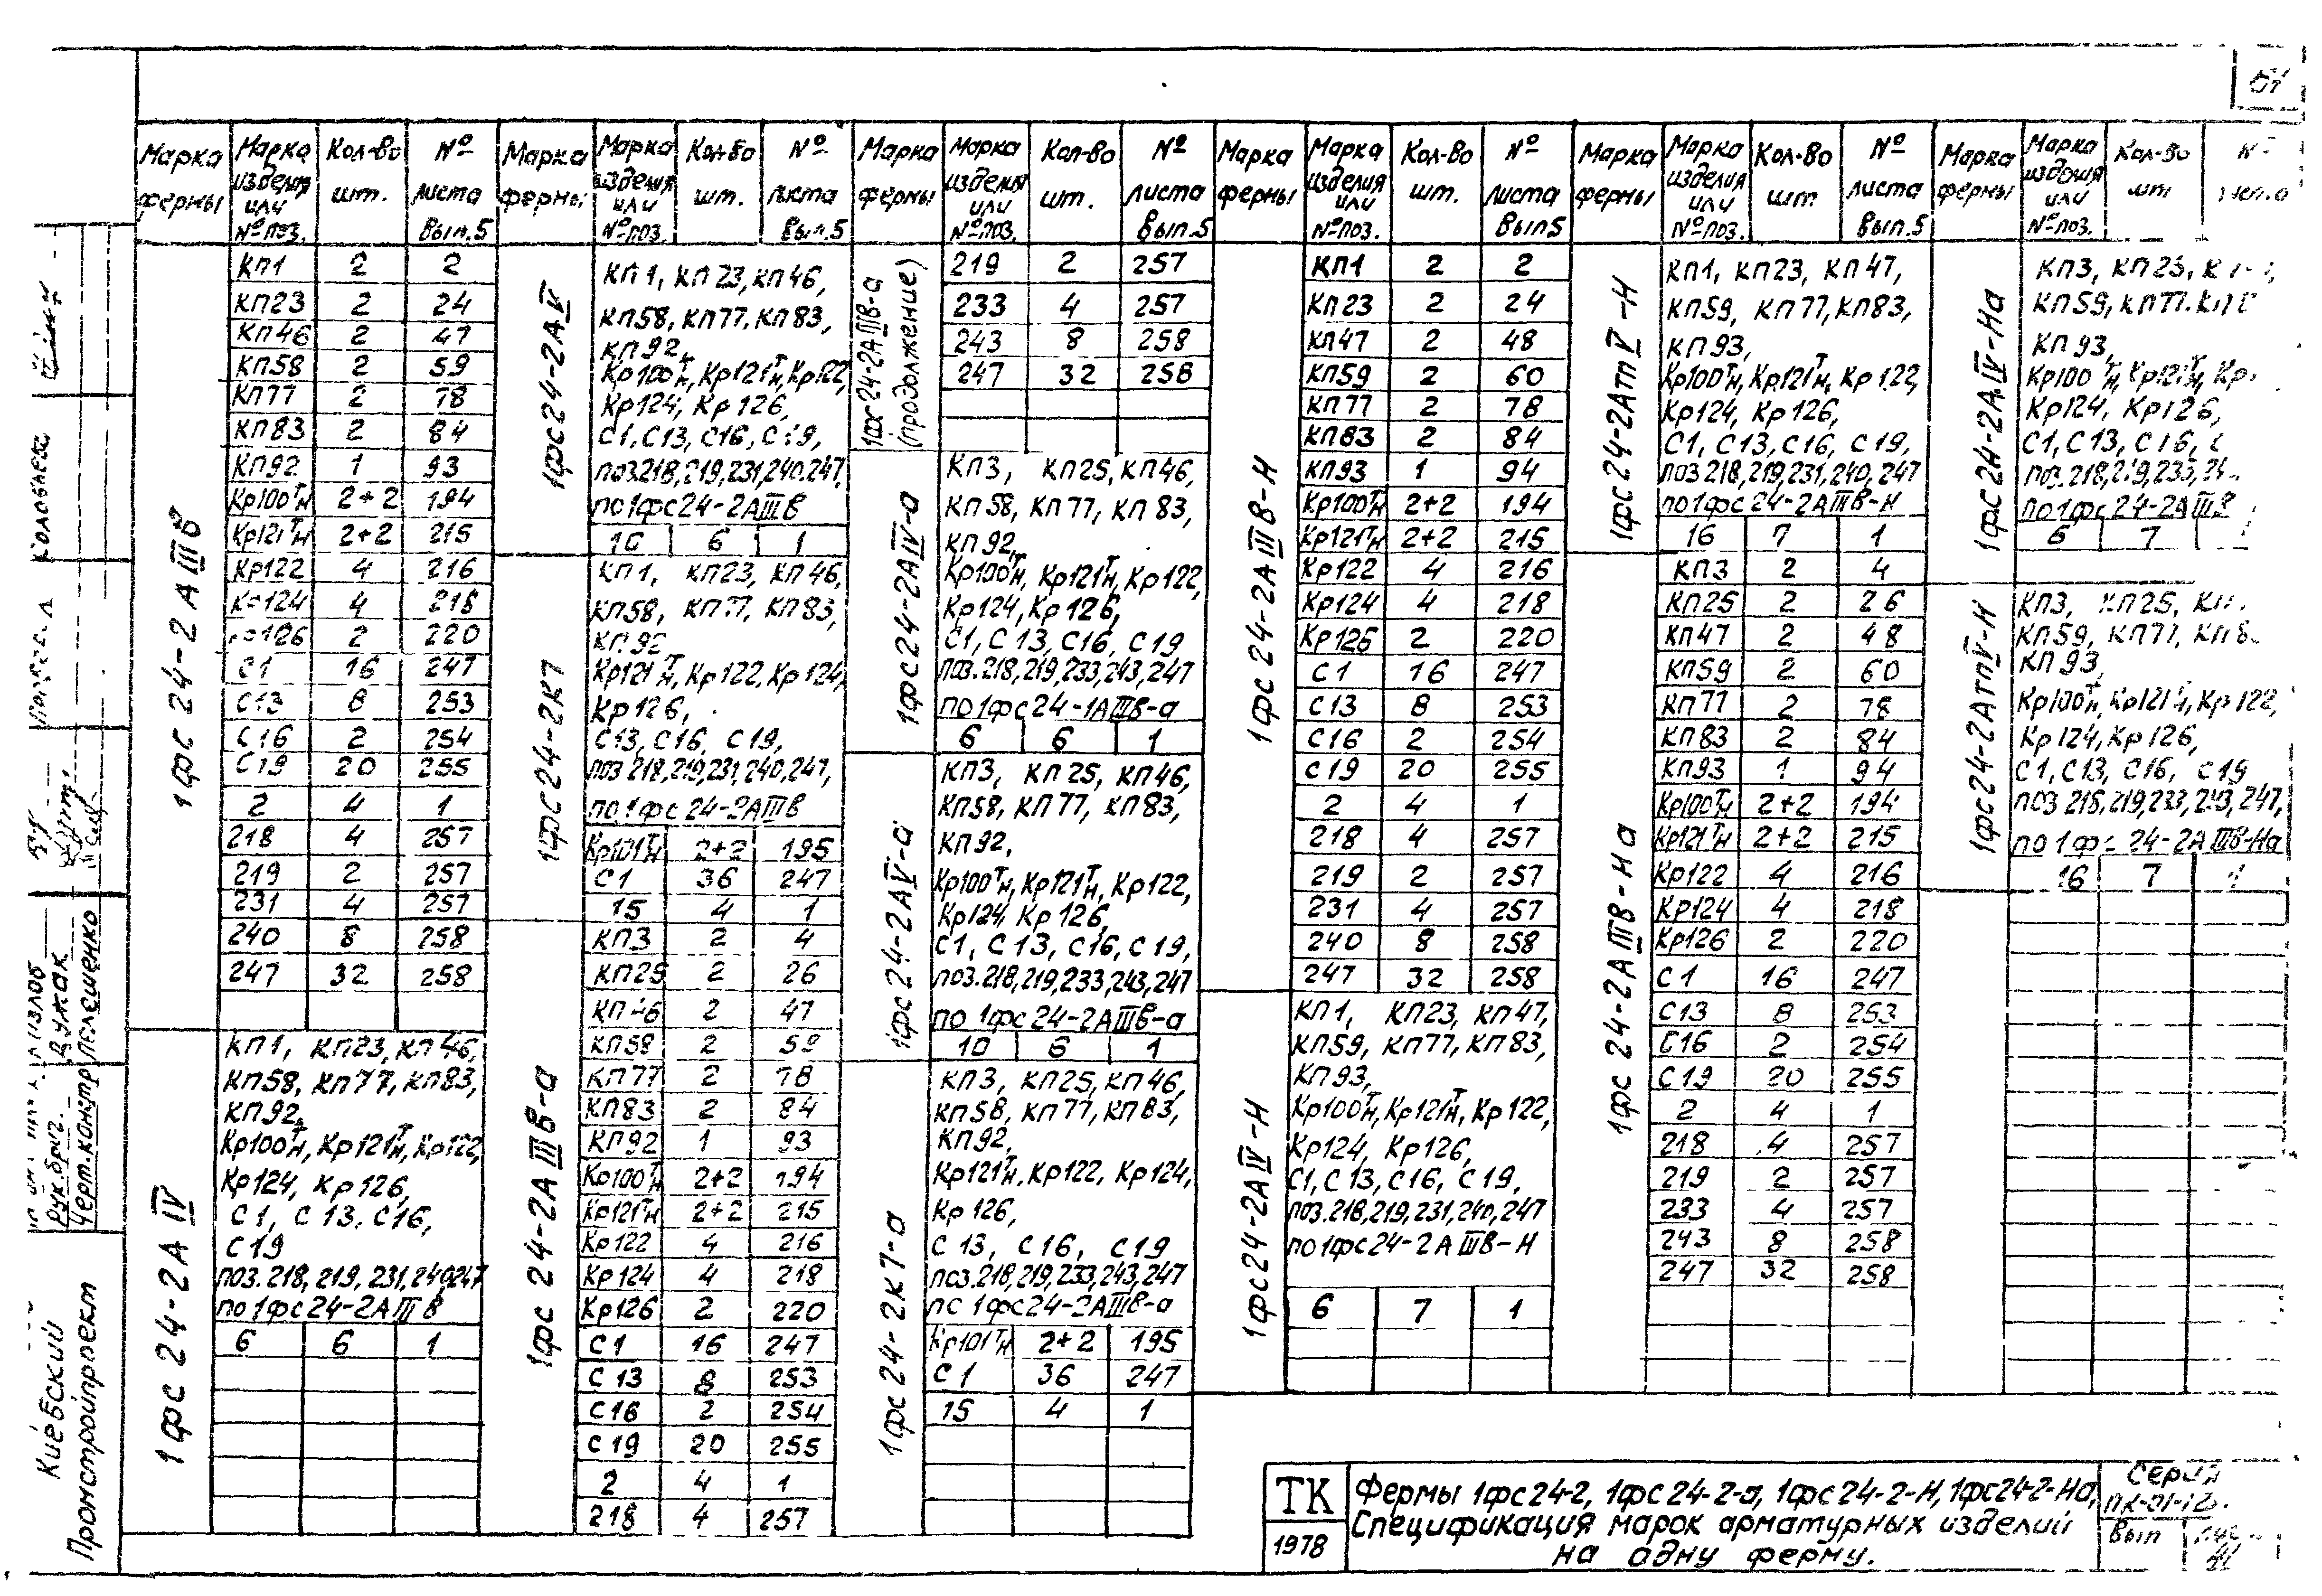 Марка фермы | Марка изделия или № поз. | Кол-во шт. | № листа Вып.5
1фс 24-2АIIIв
КП1 2 2
КП23 2 24
КП46 2 47
КП58 2 59
КП77 2 78
КП83 2 84
КП92 1 93
Кр100тн 2+2 194
Кр121тн 2+2 215
Кр122 4 216
Кр124 4 218
Кр126 2 220
С1 16 247
С13 8 253
С16 2 254
С19 20 255
2 4 1
218 4 257
219 2 257
231 4 257
240 8 258
247 32 258
1фс 24-2АIV
КП1, КП23, КП46,
КП58, КП77, КП83,
КП92,
Кр100тн, Кр121тн, Кр122,
Кр124, Кр126,
С1, С13, С16,
С19
поз.218, 219, 231, 240,247
по 1фс24-2АIIIв
6 6 1
Марка фермы | Марка изделия или № поз. | Кол-во шт. | № листа Вып.5
1фс24-2АV
КП1, КП23, КП46,
КП58, КП77, КП83,
КП92,
Кр100тн, Кр121тн, Кр122,
Кр124, Кр126,
С1, С13, С16, С19,
поз.218,219,231,240,247,
по 1фс24-2АIIIв
10 6 1
1фс24-2К7
КП1, КП23, КП46,
КП58, КП77, КП83,
КП92
Кр121тн, Кр122, Кр124,
Кр126,
С13, С16, С19,
поз 218,219,231,240,247,
по 1фс24-2АIIIв
Кр101тн 2+2 195
С1 36 247
15 4 1
1фс 24-2АIIIв-а
КП3 2 4
КП25 2 26
КП46 2 47
КП58 2 59
КП77 2 78
КП83 2 84
КП92 1 93
Кр100тн 2+2 194
Кр121тн 2+2 215
Кр122 4 216
Кр124 4 218
Кр126 2 220
С1 16 247
С13 8 253
С16 2 254
С19 20 255
2 4 1
218 4 257
Марка фермы | Марка изделия или № поз. | Кол-во шт. | № листа Вып.5
1фс24-2АIIIв-а (продолжение)
219 2 257
233 4 257
243 8 258
247 32 258
1фс24-2АIV-а
КП3, КП25, КП46,
КП58, КП77, КП83,
КП92,
Кр100тн, Кр121тн, Кр122,
Кр124, Кр126,
С1, С13, С16, С19
поз.218,219,233,243,247
по 1фс24-1АIIIв-а
6 6 1
1фс24-2АV-а
КП3, КП25, КП46,
КП58, КП77, КП83,
КП92,
Кр100тн, Кр121тн, Кр122,
Кр124, Кр126,
С1, С13, С16, С19,
поз.218,219,233,243,247
по 1фс24-2АIIIв-а
10 6 1
1фс24-2К7-а
КП3, КП25, КП46,
КП58, КП77, КП83,
КП92,
Кр121тн, Кр122, Кр124,
Кр126,
С13, С16, С19
поз.218,219,233,243,247
по 1фс24-2АIIIв-а
Кр101тн 2+2 195
С1 36 247
15 4 1
Марка фермы | Марка изделия или № поз. | Кол-во шт. | № листа Вып5
1фс 24-2АIIIв-Н
КП1 2 2
КП23 2 24
КП47 2 48
КП59 2 60
КП77 2 78
КП83 2 84
КП93 1 94
Кр100тн 2+2 194
Кр121тн 2+2 215
Кр122 4 216
Кр124 4 218
Кр126 2 220
С1 16 247
С13 8 253
С16 2 254
С19 20 255
2 4 1
218 4 257
219 2 257
231 4 257
240 8 258
247 32 258
1фс24-2АIV-Н
КП1, КП23, КП47,
КП59, КП77, КП83,
КП93,
Кр100тн, Кр121тн, Кр122,
Кр124, Кр126,
С1, С13, С16, С19,
поз.218,219,231,240,247
по 1фс24-2АIIIв-Н
6 7 1
Марка фермы | Марка изделия или № поз. | Кол-во шт. | № листа Вып.5
1фс24-2АтV-Н
КП1, КП23, КП47,
КП59, КП77, КП83,
КП93,
Кр100тн, Кр121тн, Кр122,
Кр124, Кр126,
С1, С13, С16, С19,
поз.218,219,231,240,247
по 1фс24-2АIIIв-Н
16 7 1
1фс 24-2АIIIв-На
КП3 2 4
КП25 2 26
КП47 2 48
КП59 2 60
КП77 2 78
КП83 2 84
КП93 1 94
Кр100тн 2+2 194
Кр121тн 2+2 215
Кр122 4 216
Кр124 4 218
Кр126 2 220
С1 16 247
С13 8 253
С16 2 254
С19 20 255
2 4 1
218 4 257
219 2 257
233 4 257
243 8 258
247 32 258
Марка фермы | Марка изделия или № поз. | Кол-во шт
1фс24-2АIV-На
КП3, КП25,
КП59, КП77,
КП93,
Кр100тн, Кр121тн,
Кр124, Кр126,
С1, С13, С16,
поз.218,219,233,
по 1фс24-2АIIIв
6 7
1фс24-2АтV-Н
КП3, КП25,
КП59, КП77,
КП93,
Кр100тн, Кр121тн, Кр122,
Кр124, Кр126,
С1, С13, С16, С19
поз 218,219,233,243,247,
по 1фс 24-2АIIIв-На
16 7 1
ТК
1978
Фермы 1фс24-2, 1фс24-2-а, 1фс24-2-Н, 1фс24-2-На,
Спецификация марок арматурных изделий
на одну ферму.
Серия
Вып
Киевский
Промстройпроект
Рук.бриг.
Черт.констр
Вужак
Лелещенко